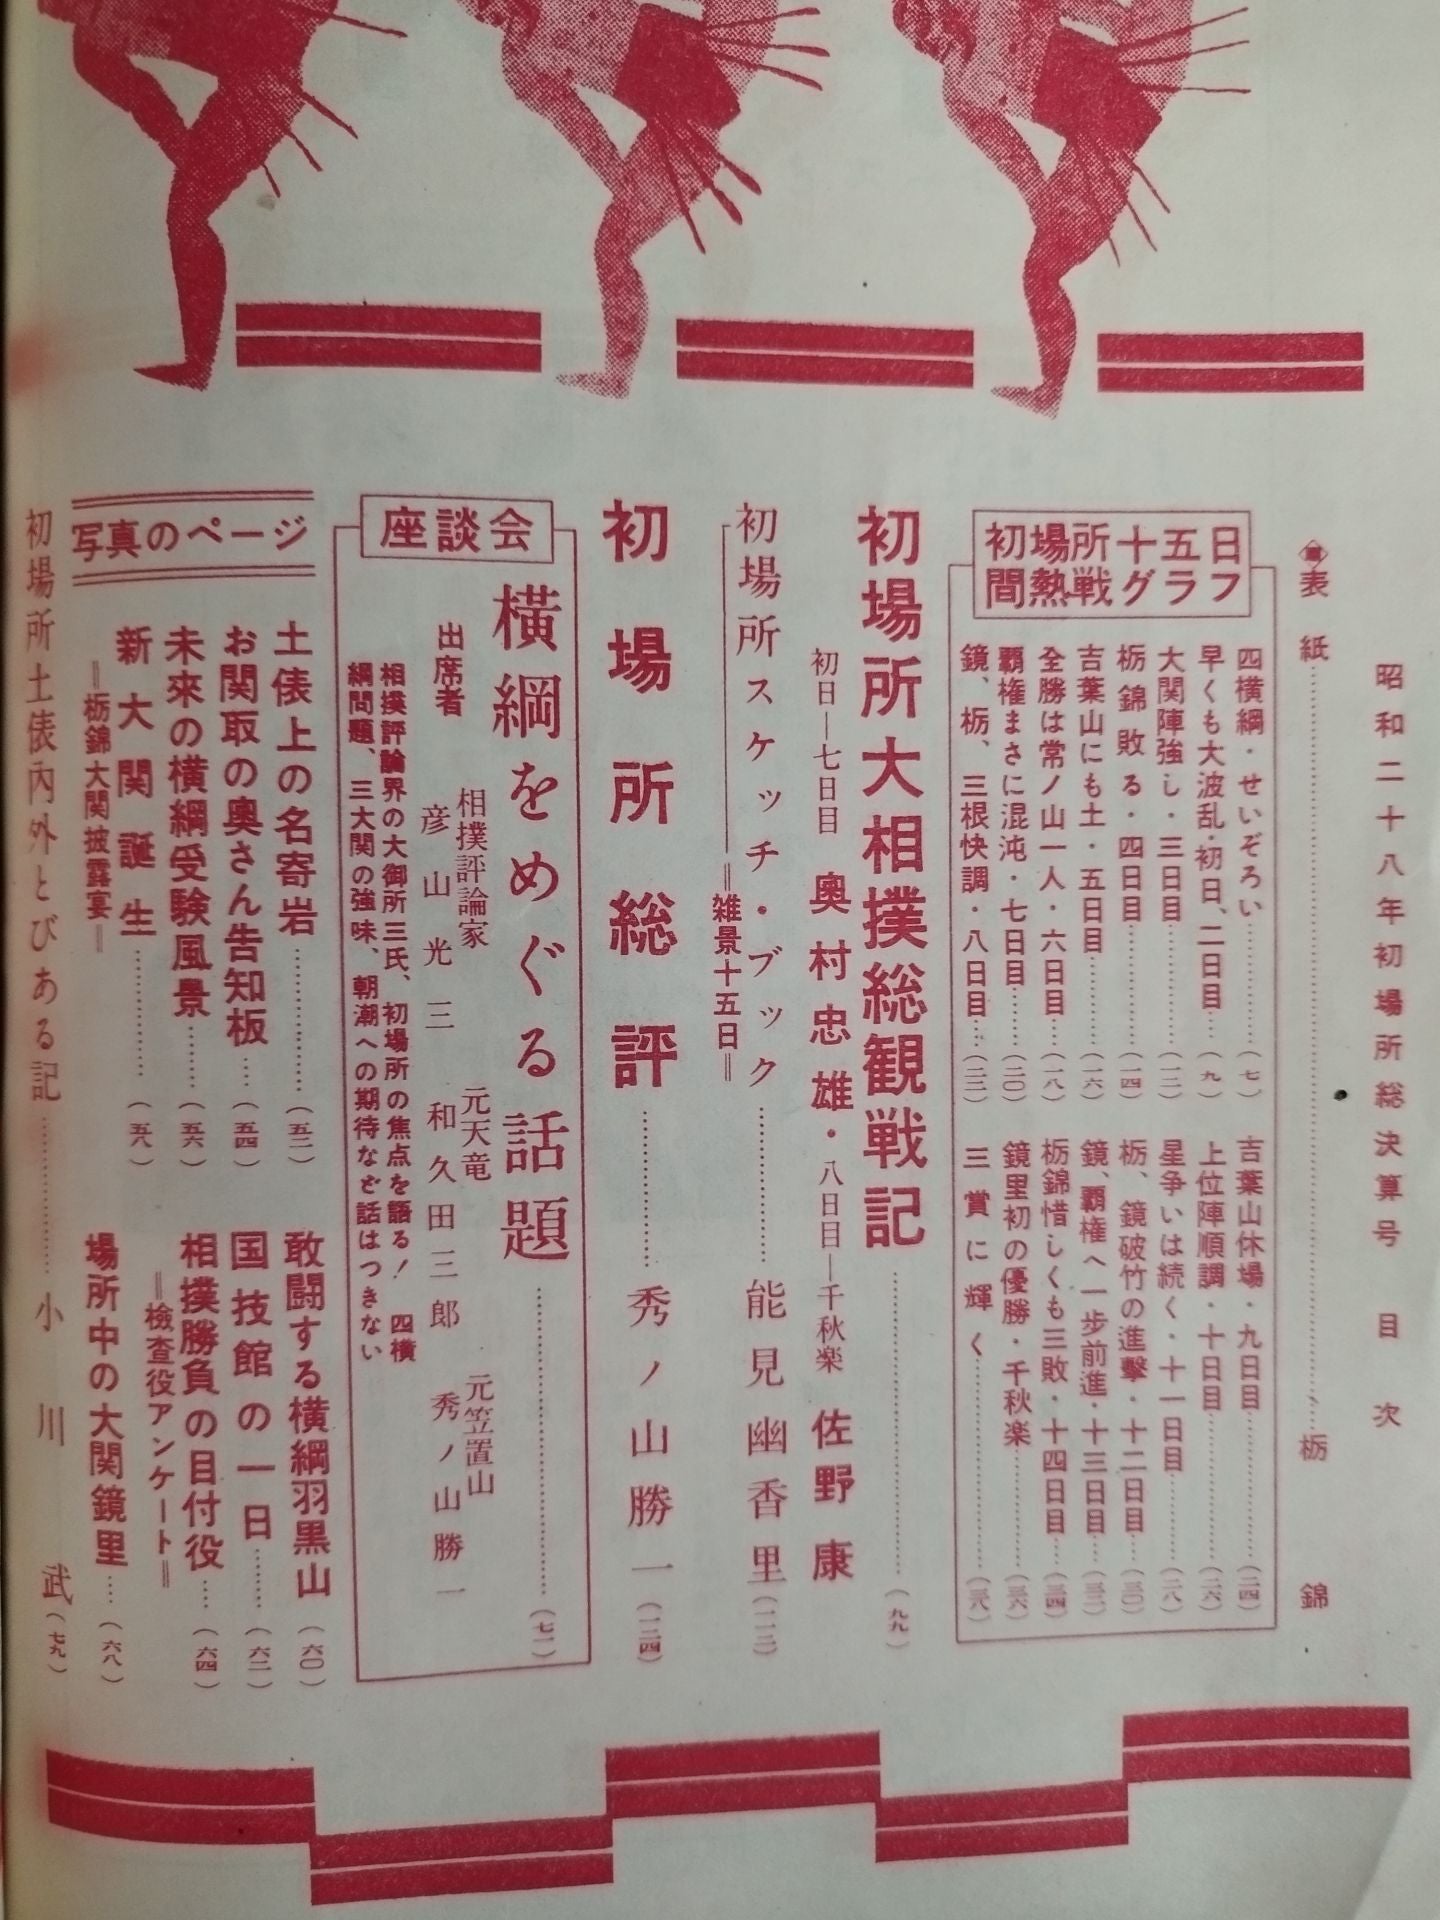 昭和二十八年初場所総決算号 目次
表紙……栃錦
初場所十五日
間熱戦グラフ
四横綱・せいぞろい……(七)
早くも大波乱・初日、二日目……(九)
大関陣強し・三日目……(一二)
栃錦敗る・四日目……(一四)
吉葉山にも土・五日目……(一六)
全勝は常ノ山一人・六日目……(一八)
覇権まさに混沌・七日目……(二〇)
鏡、栃、三根快調・八日目……(二二)
吉葉山休場・九日目……(二四)
上位陣順調・十日目……(二六)
星争いは続く・十一日目……(二八)
栃、鏡破竹の進撃・十二日目……(三〇)
鏡、覇権へ一歩前進・十三日目……(三二)
栃錦惜しくも三敗・十四日目……(三四)
鏡里初の優勝・千秋楽……(三六)
三賞に輝く……(三八)
初場所大相撲総観戦記……(九九)
初日―七日目 奥村忠雄・八日目―千秋楽 佐野康
初場所スケッチ・ブック……能見幽香里(一一二)
=雑景十五日=
初場所総評……秀ノ山勝一(一三四)
座談会
横綱をめぐる話題……(七一)
出席者
相撲評論家 彦山光三
元天竜 和久田三郎
元笠置山 秀ノ山勝一
相撲評論界の大御所三氏、初場所の焦点を語る! 四横
綱問題、三大関の強味、朝潮への期待など話はつきない
写真のページ
土俵上の名寄岩……(五二)
お関取の奥さん告知板……(五四)
未來の横綱受験風景……(五六)
新大関誕生……(五八)
=栃錦大関披露宴=
敢闘する横綱羽黒山(六〇)
国技館の一日……(六二)
相撲勝負の目付役……(六四)
=檢査役アンケート=
場所中の大関鏡里……(六八)
初場所土俵内外とびある記……小川武(七九)